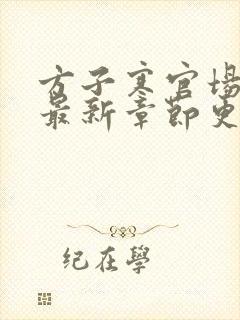 方子寒官场
最新章节更
纪在學